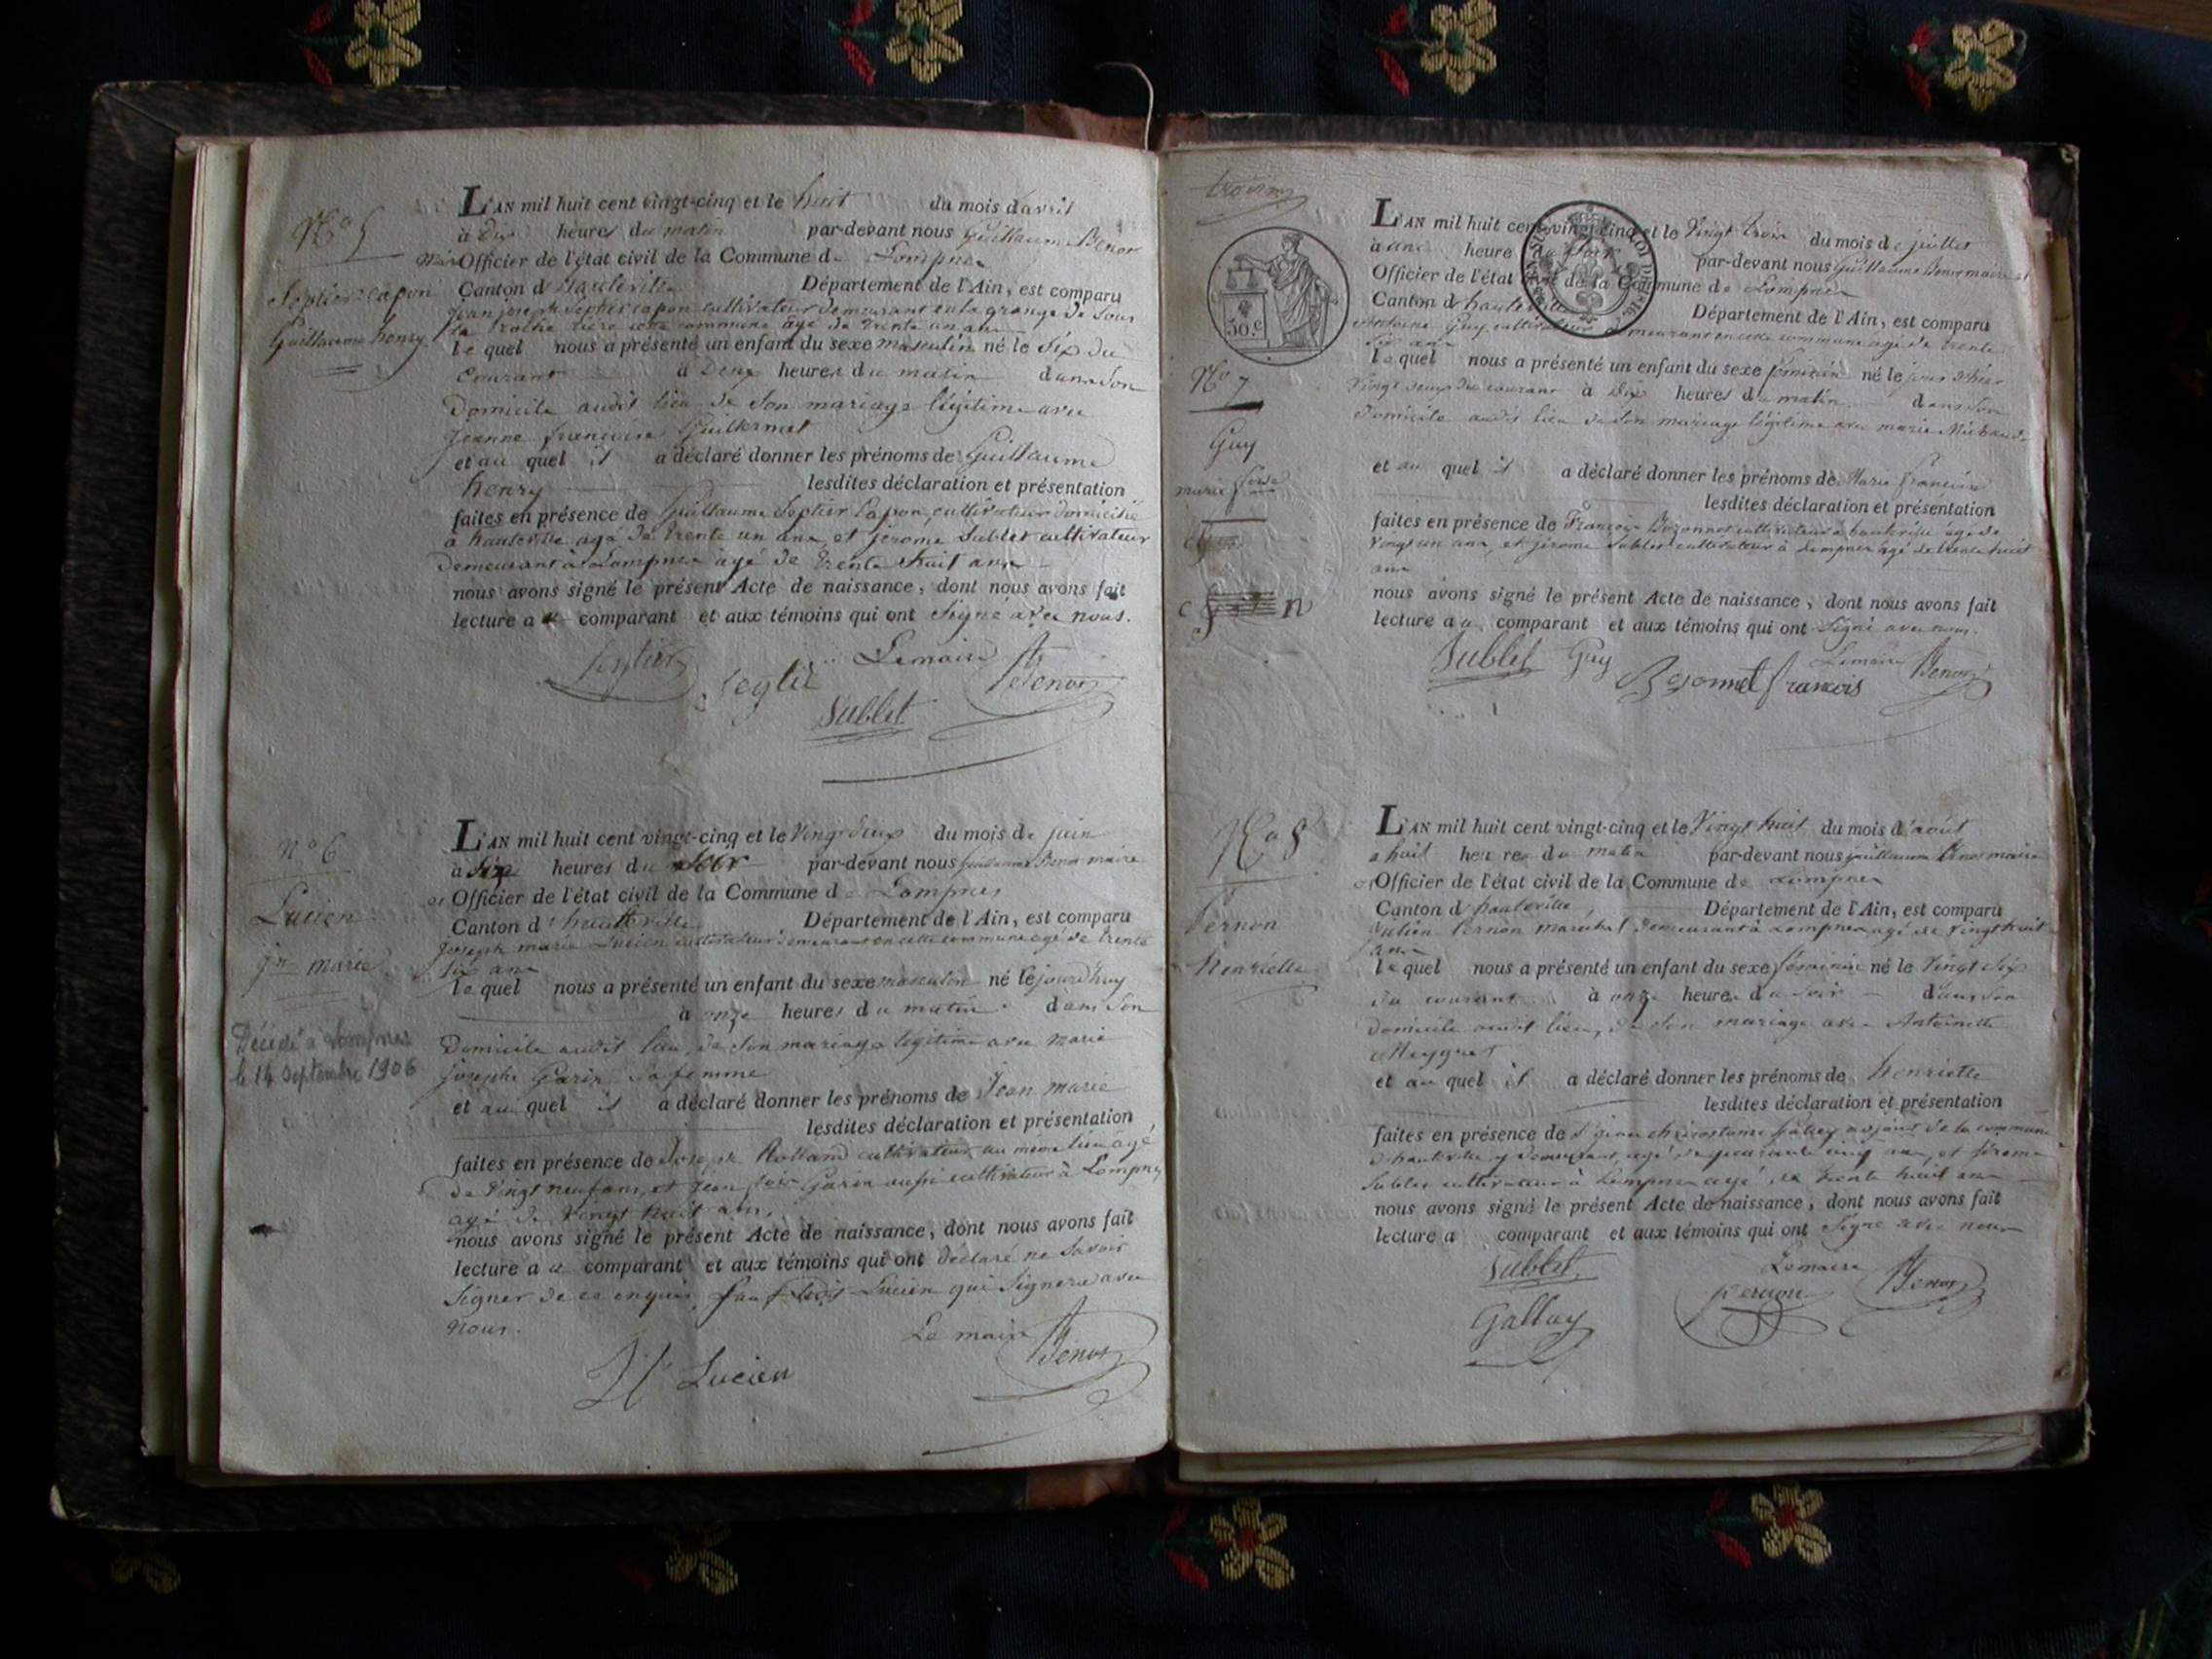 N° 5
Septier Lapon
Guillaume henry
L'AN mil huit cent vingt-cinq et le huit du mois d'avril
à dix heures du matin par-devant nous Guillaume Benoz
Maire Officier de l'état civil de la Commune de Lompnes
Canton d'hauteville Département de l'Ain, est comparu
jean joseph Septier Lapon cultivateur demeurant en la grange de Sous
la Roche rière cette commune agé de trente un ans
le quel nous a présenté un enfant du sexe masculin né le Six du
Courant à Deux heures du matin dans Son
Domicile audit lieu de Son mariage légitime avec
Jeanne françoise Guillermet
et au quel il a déclaré donner les prénoms de Guillaume
henry lesdites déclaration et présentation
faites en présence de Guillaume Septier Lapon, cultivateur domicilié
à hauteville agé de trente un ans, et jerome Sublet cultivateur
demeurant à Lompnes agé de trente huit ans
nous avons signé le présent Acte de naissance, dont nous avons fait
lecture au comparant et aux témoins qui ont Signé avec nous.
Septier
Septie
Le maire
Benoz
Sublet
n° 6
Lucien
jn marie
Décédé à Lompnes
le 14 Septembre 1906
L'AN mil huit cent vingt-cinq et le Vingt deux du mois de juin
à Six heures du Soir par-devant nous Guillaume Benoz maire
et Officier de l'état civil de la Commune de Lompnes
Canton d'hauteville Département de l'Ain, est comparu
Joseph marie Lucien cultivateur demeurant en cette commune agé de trente
Six ans
le quel nous a présenté un enfant du sexe masculin né le jourd'huy
à onze heures du matin dans Son
Domicile audit lieu, de Son mariage légitime avec Marie
josephe Garin Sa femme
et au quel il a déclaré donner les prénoms de Jean marie
lesdites déclaration et présentation
faites en présence de Joseph Rolland cultivateur au même lieu agé
de Vingt neuf ans, et jean Garin aussi cultivateur à Lompnes
agé de Vingt huit ans.
nous avons signé le présent Acte de naissance, dont nous avons fait
lecture au comparant et aux témoins qui ont déclaré ne Savoir
Signer de ce enquis, Sauf Lucien qui Signera avec
nous.
Le maire Benoz
Lucien
trois
30.c
N° 7
Guy
marie
L'AN mil huit cent vingt-cinq et le Vingt trois du mois de juillet
à une heure du Soir par-devant nous Guillaume Benoz maire et
Officier de l'état civil de la Commune de Lompnes
Canton d'hauteville Département de l'Ain, est comparu
Antoine Guy cultivateur demeurant en cette commune agé de trente
Six ans
le quel nous a présenté un enfant du sexe féminin né le jour d'hier
Vingt deux du courant à Dix heures du matin dans Son
Domicile audit lieu de Son mariage légitime avec marie Michaud
et au quel il a déclaré donner les prénoms de Marie françoise
lesdites déclaration et présentation
faites en présence de François Bozonnet cultivateur à hauteville agé de
Vingt un ans, et jérome Sublet cultivateur à Lompnes agé de trente huit
ans
nous avons signé le présent Acte de naissance, dont nous avons fait
lecture au comparant et aux témoins qui ont Signé avec nous.
Sublet Guy Bozonnet francois Le maire Benoz
N° 8
Pernon
henriette
L'AN mil huit cent vingt-cinq et le Vingt huit du mois d'août
à huit heures du matin par-devant nous guillaume Benoz maire
et Officier de l'état civil de la Commune de Lompnes
Canton d'hauteville, Département de l'Ain, est comparu
Julien Pernon marechal demeurant à Lompnes agé de Vingt huit
ans
le quel nous a présenté un enfant du sexe féminin né le Vingt Six
du courant à onze heures du Soir dans Son
Domicile audit lieu, de Son mariage avec Antoinette
Meygret
et au quel il a déclaré donner les prénoms de henriette
lesdites déclaration et présentation
faites en présence de Sr jean chrisostome Gallay adjoint de la commune
d'hauteville y demeurant, agé de quarante cinq ans, et jérome
Sublet cultivateur à Lompnes agé de trente huit ans
nous avons signé le présent Acte de naissance, dont nous avons fait
lecture a comparant et aux témoins qui ont Signé avec nous
Sublet Le maire
Pernon Benoz
Gallay